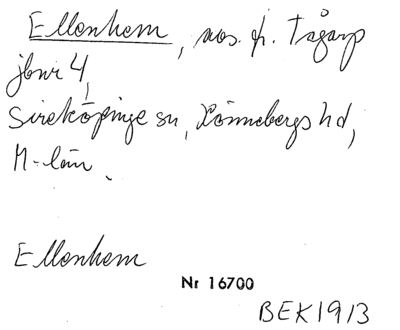 Ellenhem, nos. fr. Tågarp
jbnr 4,
Sireköpinge sn, Rönnebergs hd,
M-län.
Ellenhem
Nr 16700
BEK1913